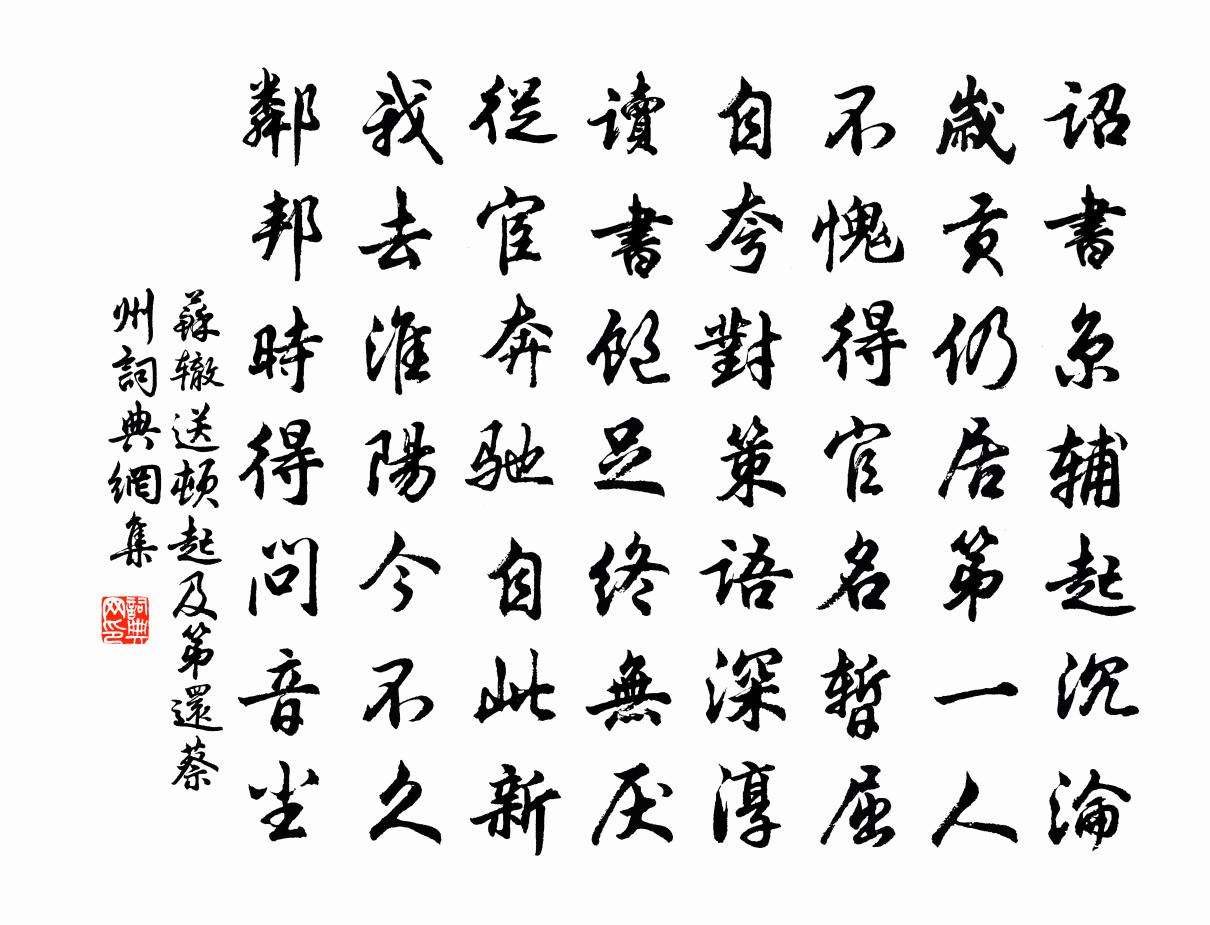 詔書原輔起沉淪
歲貢仍居第一人
不愧得官名暫屈
自夸對策語深淳
讀書飽足終無厌
從宦奔馳自此新
我去淮陽今不久
鄰邦時得問音尘
蘇辙送頓起及第還蔡
州詞典網集
詞典网印